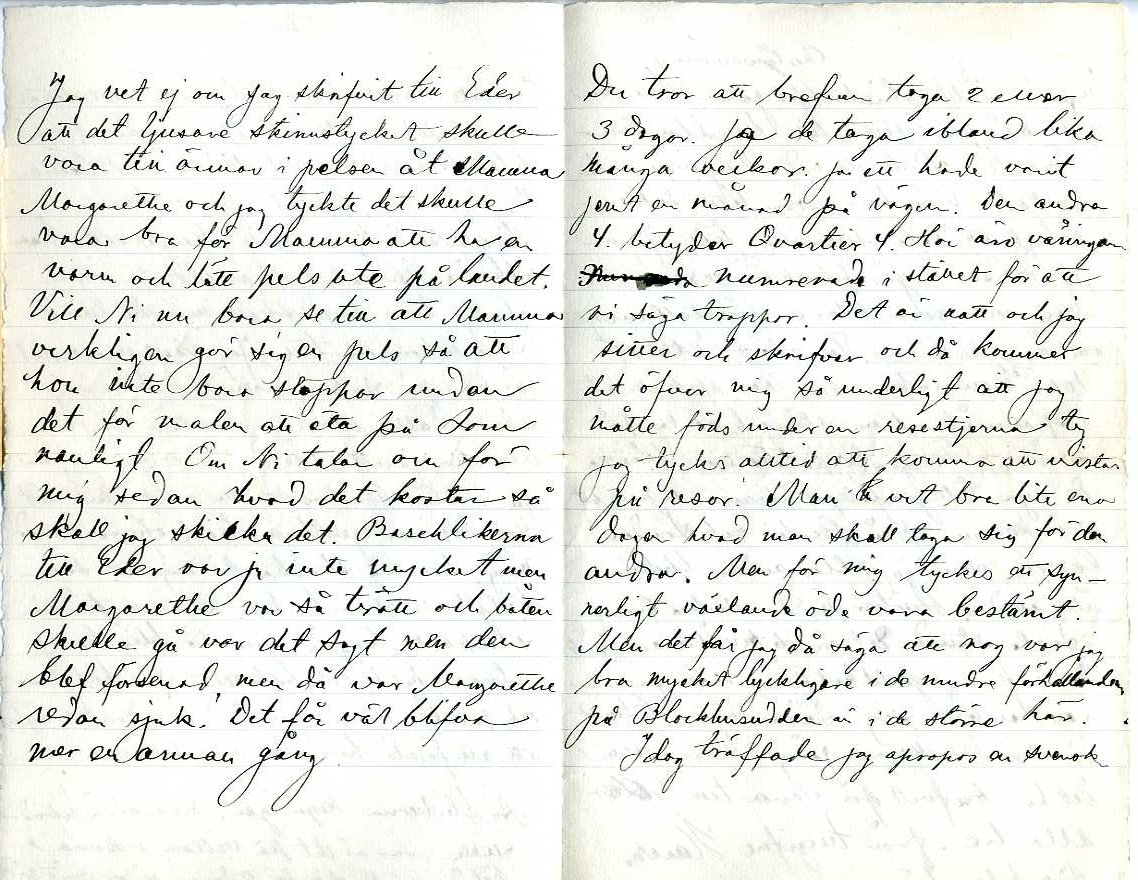 Jag vet ej om jag skrifvit till Eder
att det ljusare skinnstycket skulle
vara till ärmar i pelsen åt Mamma
Margarethe och jag tyckte det skulle
vara bra för Mamma att ha en
varm och lätt pels ute på landet.
Vill Ni nu bara se till att Mamma
verkligen gör sig en pels så att
hon inte bara stoppar undan
det för malen att äta på som
vanligt. Om Ni talar om för
mig sedan hvad det kostar så
skall jag skicka det. Baschlikerna
till Eder var ju inte mycket men
Margarethe var så trött och båten
skulle gå var det sagt men den
blef försenad, men då var Margarethe
redan sjuk. Det får väl blifva
mer en annan gång
Du tror att brefven taga 2 eller
3 dagar. Ja de taga ibland lika
många veckor. Ja ett hade varit
jemt en månad på vägen. Den andra
4. betyder Quartier 4. Här äro våningarna
numrerade i stället för att
vi säga trappor. Det är natt och jag
sitter och skrifver och då kommer
det öfver mig så underligt att jag
måtte föds under en resestjerna ty
jag tycks alltid att komma att vistas
på resor. Man vet bra lite ena
dagen hvad man skall taga sig för den
andra. Men för mig tyckes ett syn-
nerligt växlande öde vara bestämt.
Men det får jag då säga att nog var jag
bra mycket lyckligare i de mindre förhållanden
på Blockhusudden än i de större här.
Idag träffade jag apropos en svensk